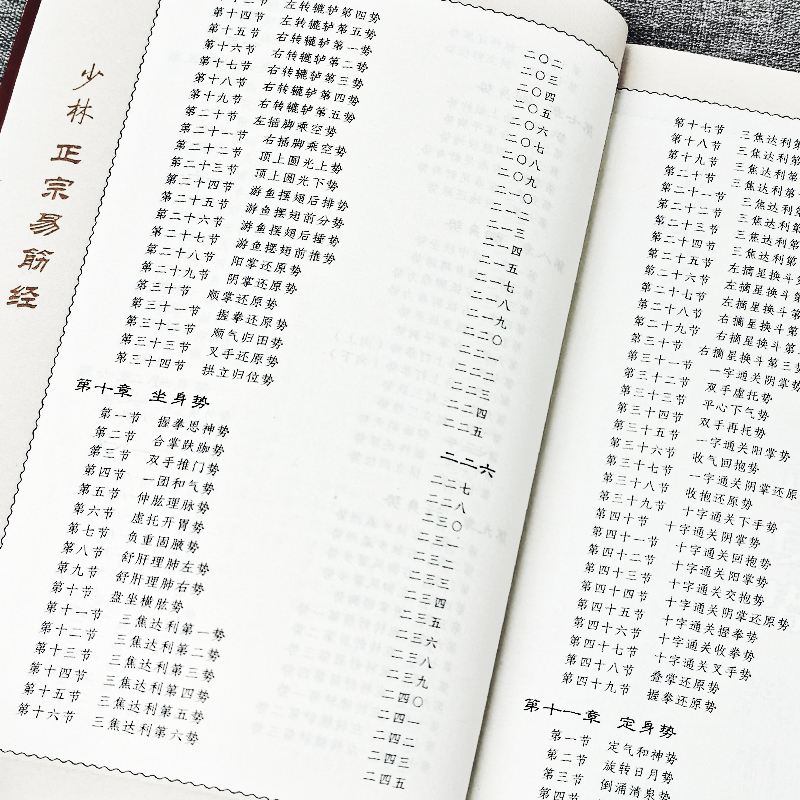 少林
正宗易筋经
第十三节 左转辘轳第四势 二〇二
第十四节 左转辘轳第五势 二〇三
第十五节 右转辘轳第一势 二〇四
第十六节 右转辘轳第二势 二〇五
第十七节 右转辘轳第三势 二〇六
第十八节 右转辘轳第四势 二〇七
第十九节 右转辘轳第五势 二〇八
第二十节 左插脚乘空势 二〇九
第二十一节 右插脚乘空势 二一〇
第二十二节 顶上圆光上势 二一二
第二十三节 顶上圆光下势 二一三
第二十四节 游鱼摆翅后排势 二一四
第二十五节 游鱼摆翅前分势 二一五
第二十六节 游鱼摆翅后撞势 二一七
第二十七节 游鱼摆翅前推势 二一八
第二十八节 阳掌还原势 二一九
第二十九节 阴掌还原势 二二〇
第三十节 顺掌还原势 二二一
第三十一节 握拳还原势 二二二
第三十二节 顺气归田势 二二三
第三十三节 叉手还原势 二二四
第三十四节 拱立归位势 二二五
第十章 坐身势 二二六
第一节 握拳恩神势 二二七
第二节 合掌趺跏势 二二八
第三节 双手推门势 二三〇
第四节 一团和气势 二三一
第五节 伸肱理脉势 二三二
第六节 虚托开胃势 二三三
第七节 负重固腋势 二三四
第八节 舒肝理肺左势 二三五
第九节 舒肝理肺右势 二三六
第十节 盘坐横肱势 二三八
第十一节 三焦达利第一势 二三九
第十二节 三焦达利第二势 二四〇
第十三节 三焦达利第三势 二四一
第十四节 三焦达利第四势 二四二
第十五节 三焦达利第五势 二四三
第十六节 三焦达利第六势 二四五
第十七节 三焦达利第
第十八节 三焦达利第
第十九节 三焦达利第
第二十节 三焦达利第
第二十一节 三焦达利第
第二十二节 三焦达利第
第二十三节 三焦达利第
第二十四节 三焦达利第
第二十五节 左摘星换斗第
第二十六节 左摘星换斗第
第二十七节 左摘星换斗第
第二十八节 右摘星换斗第
第二十九节 右摘星换斗第
第三十节 右摘星换斗第三势
第三十一节 一字通关阴掌势
第三十二节 双手虚托势
第三十三节 平心下气势
第三十四节 双手再托势
第三十五节 一字通关阳掌势
第三十六节 收气回抱势
第三十七节 一字通关阴掌还原
第三十八节 收抱还原势
第三十九节 十字通关下手势
第四十节 十字通关阴掌势
第四十一节 十字通关回抱势
第四十二节 十字通关阳掌势
第四十三节 十字通关交抱势
第四十四节 十字通关阴掌还原势
第四十五节 十字通关握拳势
第四十六节 十字通关收拳势
第四十七节 十字通关叉手势
第四十八节 叠掌还原势
第四十九节 握拳还原势
第十一章 定身势
第一节 定气和神势
第二节 旋转日月势
第三节 倒涌清泉势
第四节